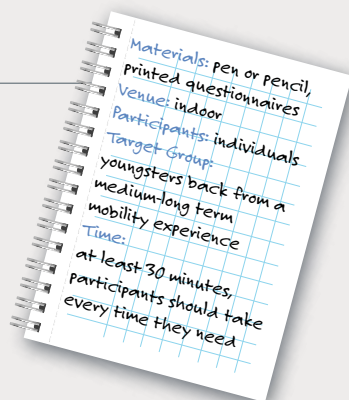 Materials: pen or pencil,
printed questionnaires
Venue: indoor
Participants: individuals
Target Group:
youngsters back from a
medium-long term
mobility experience
Time:
at least 30 minutes,
participants should take
every time they need